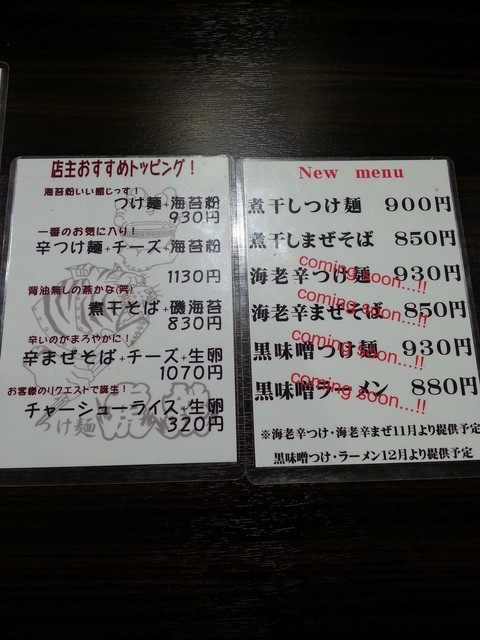 店主おすすめトッピング！
海苔粉いい感じっす！
つけ麺+海苔粉
930円
一番のお気に入り！
辛つけ麺+チーズ+海苔粉
1130円
背油無しの蕎かな(笑)
煮干そば+磯海苔
830円
辛いのがまろやかに！
辛まぜそば+チーズ+生卵
1070円
お客様のリクエストで誕生！
チャーシューライス+生卵
320円
つけ麺
New menu
煮干しつけ麺 900円
煮干しまぜそば 850円
海老辛つけ麺 930円
coming soon...!!
海老辛まぜそば 850円
coming soon...!!
黒味噌つけ麺 930円
coming soon...!!
黒味噌ラーメン 880円
coming soon...!!
※海老辛つけ・海老辛まぜ11月より提供予定
黒味噌つけ・ラーメン12月より提供予定